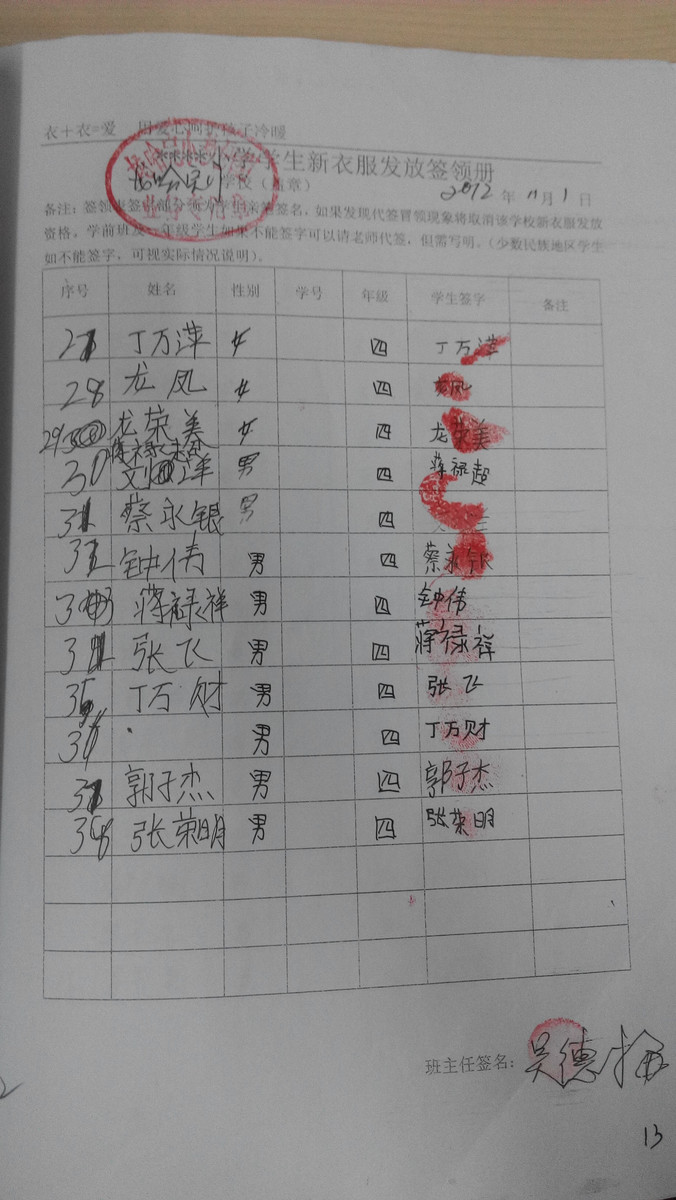 衣+衣=爱 因爱心呵护孩子冷暖
****小学学生新衣服发放签领册
学校（盖章） 2012 年 11 月 1 日
备注：签领表签字部分须为学生亲笔签名，如果发现代签冒领现象将取消该学校新衣服发放
资格，学前班及一年级学生如果不能签字可以请老师代签，但需写明。（少数民族地区学生
如不能签字，可视实际情况说明）。
序号 姓名 性别 学号 年级 学生签字 备注
27 丁万萍 女 四 丁万萍
28 龙凤 女 四 龙凤
29 龙荣美 女 四 龙荣美
蒋禄超
30 男 四 蒋禄超
31 蔡永银 男 四
32 钟伟 男 四 蔡永银
33 蒋禄祥 男 四 钟伟
34 张飞 男 四 蒋禄祥
35 丁万财 男 四 张飞
36 男 四 丁万财
37 郭子杰 男 四 郭子杰
38 张荣明 男 四 张荣明
班主任签名：吴德
13